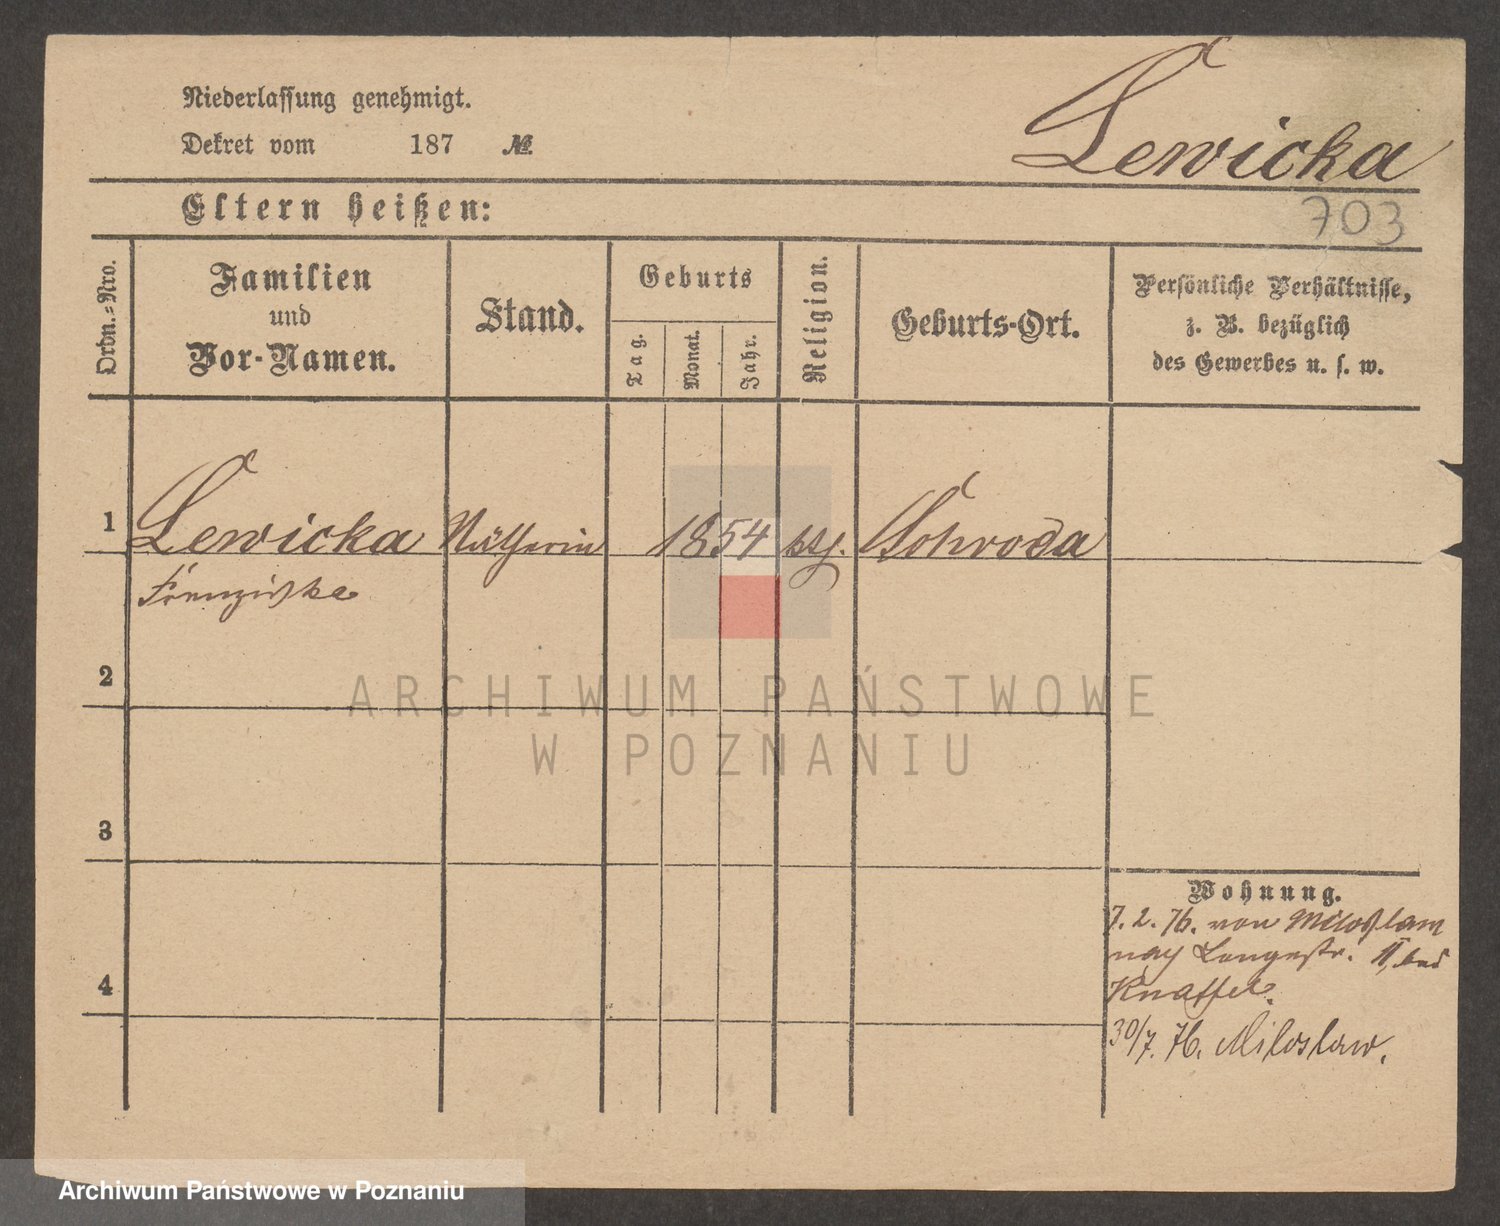 Lewicka
Niederlassung genehmigt.
Dekret vom 187 №
Eltern heißen:
703
Ordn.=Nro.
Familien
und
Vor-Namen.
Stand.
Geburts
Tag.
Monat.
Jahr.
Religion.
Geburts-Ort.
Persönliche Verhältnisse,
z. B. bezüglich
des Gewerbes u. s. w.
1 Lewicka Nätherin 1854 kth. Schroda
Franziska
2
ARCHIWUM PAŃSTWOWE
W POZNANIU
3
Wohnung.
7. 2. 76. von Miloslaw
nach Langestr. 11, bei
4
30/7. 76. Miloslaw.
Archiwum Państwowe w Poznaniu